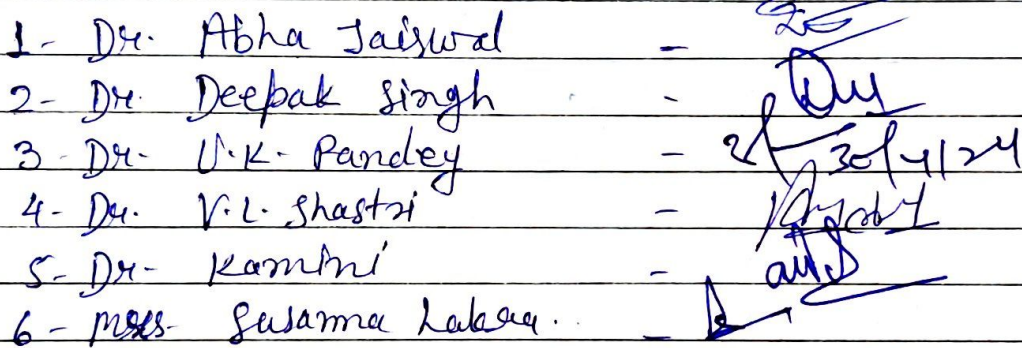 1- Dr. Abha Jaiswal -
2- Dr. Deepak Singh -
3- Dr- U.K- Pandey - 30/4/24
4- Dr. V.L. Shastri -
5- Dr- Kamini -
6- Mrs- Susanna Lakra. -